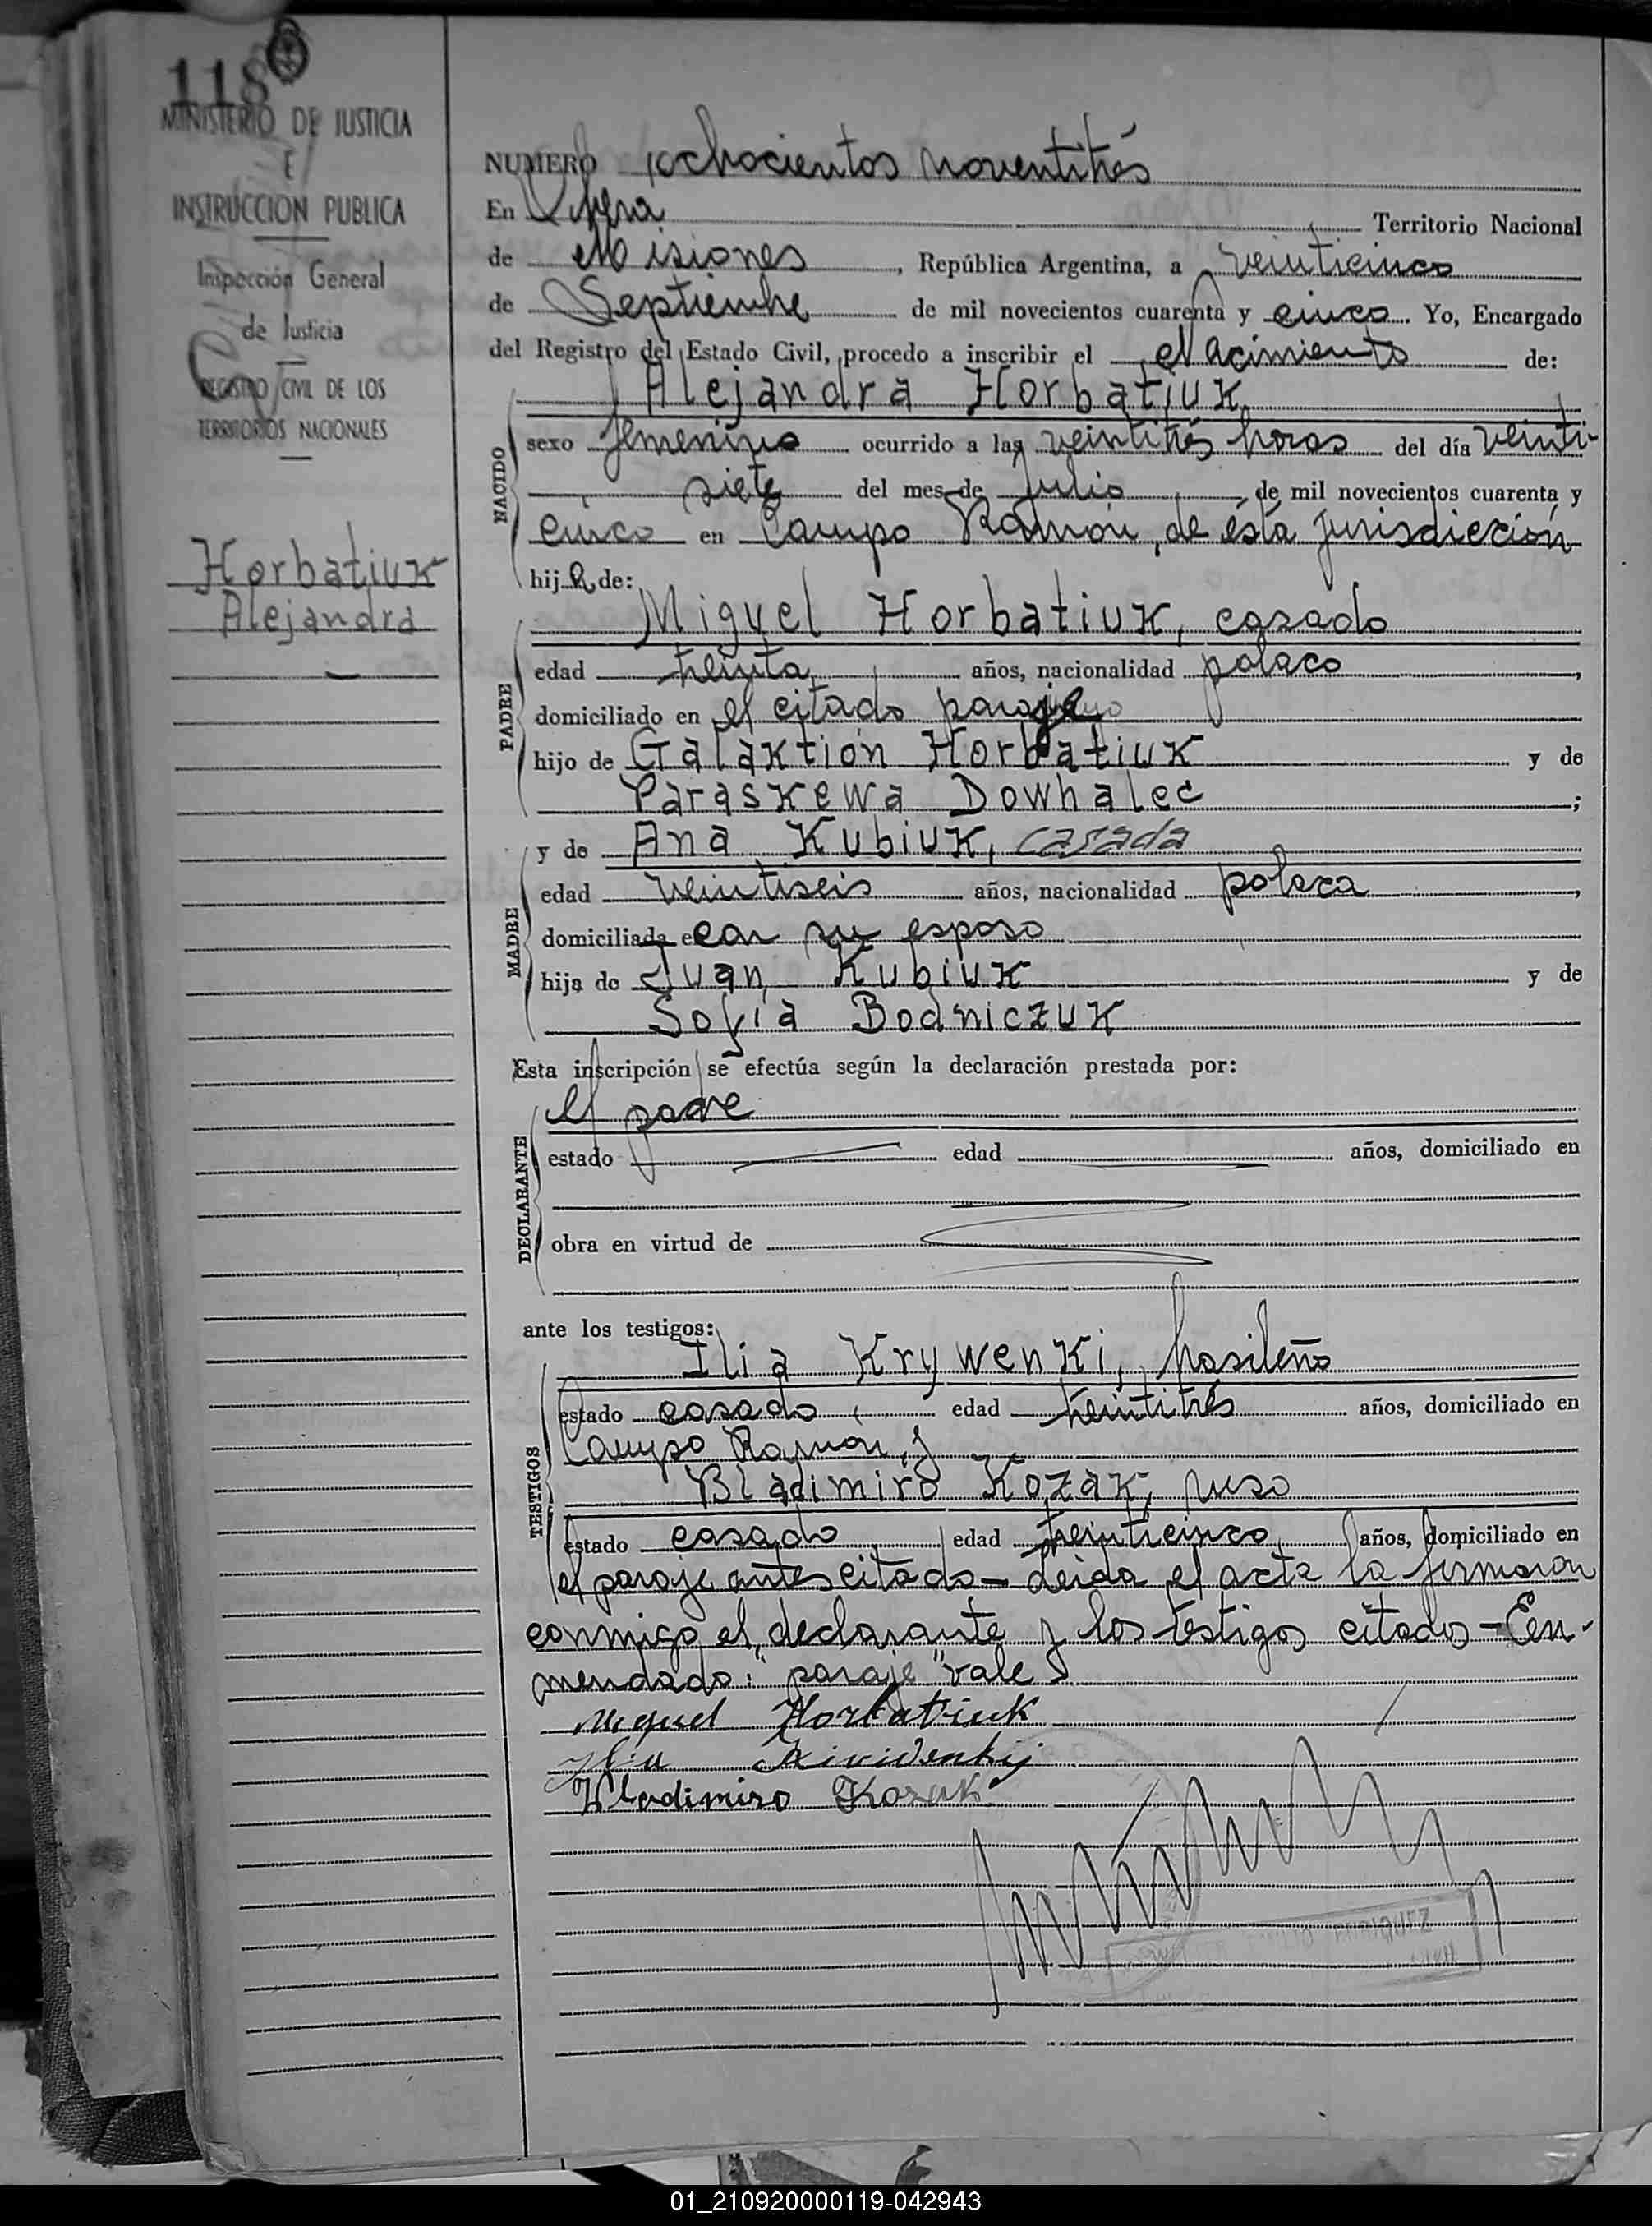 118
MINISTERIO DE JUSTICIA
E
INSTRUCCION PUBLICA
Inspección General
de Justicia
REGISTRO CIVIL DE LOS
TERRITORIOS NACIONALES
Horbatiuk
Alejandra
NUMERO ochocientos noventitrés
En Obera Territorio Nacional
de Misiones, República Argentina, a veinticinco
de Septiembre de mil novecientos cuarenta y cinco. Yo, Encargado
del Registro del Estado Civil, procedo a inscribir el Nacimiento de:
Alejandra Horbatiuk
NACIDO
sexo femenino ocurrido a las veintitrés horas del día veinti-
siete del mes de Julio, de mil novecientos cuarenta y
cinco en Campo Ramón, de ésta jurisdicción
hija de:
PADRE
Miguel Horbatiuk, casado
edad treinta años, nacionalidad polaco,
domiciliado en el citado paraje
hijo de Galaktión Horbatiuk y de
Paraskewa Dowhalec;
MADRE
y de Ana Kubiuk, casada
edad veintiseis años, nacionalidad polaca,
domiciliada con su esposo
hija de Juan Kubiuk y de
Sofía Bodniczuk
Esta inscripción se efectúa según la declaración prestada por:
DECLARANTE
el padre
estado edad años, domiciliado en
obra en virtud de
ante los testigos:
TESTIGOS
Ilia Krywenki, brasileño
estado casado, edad treintitrés años, domiciliado en
Campo Ramón, y
Bladimiro Kozak, ruso
estado casado, edad treinticinco años, domiciliado en
el paraje antes citado- Leida el acta la firmaron
conmigo el declarante y los testigos citados-En-
mendado: "paraje" vale
Miguel Horbatiuk
Wladimiro Kozak
01_210920000119-042943